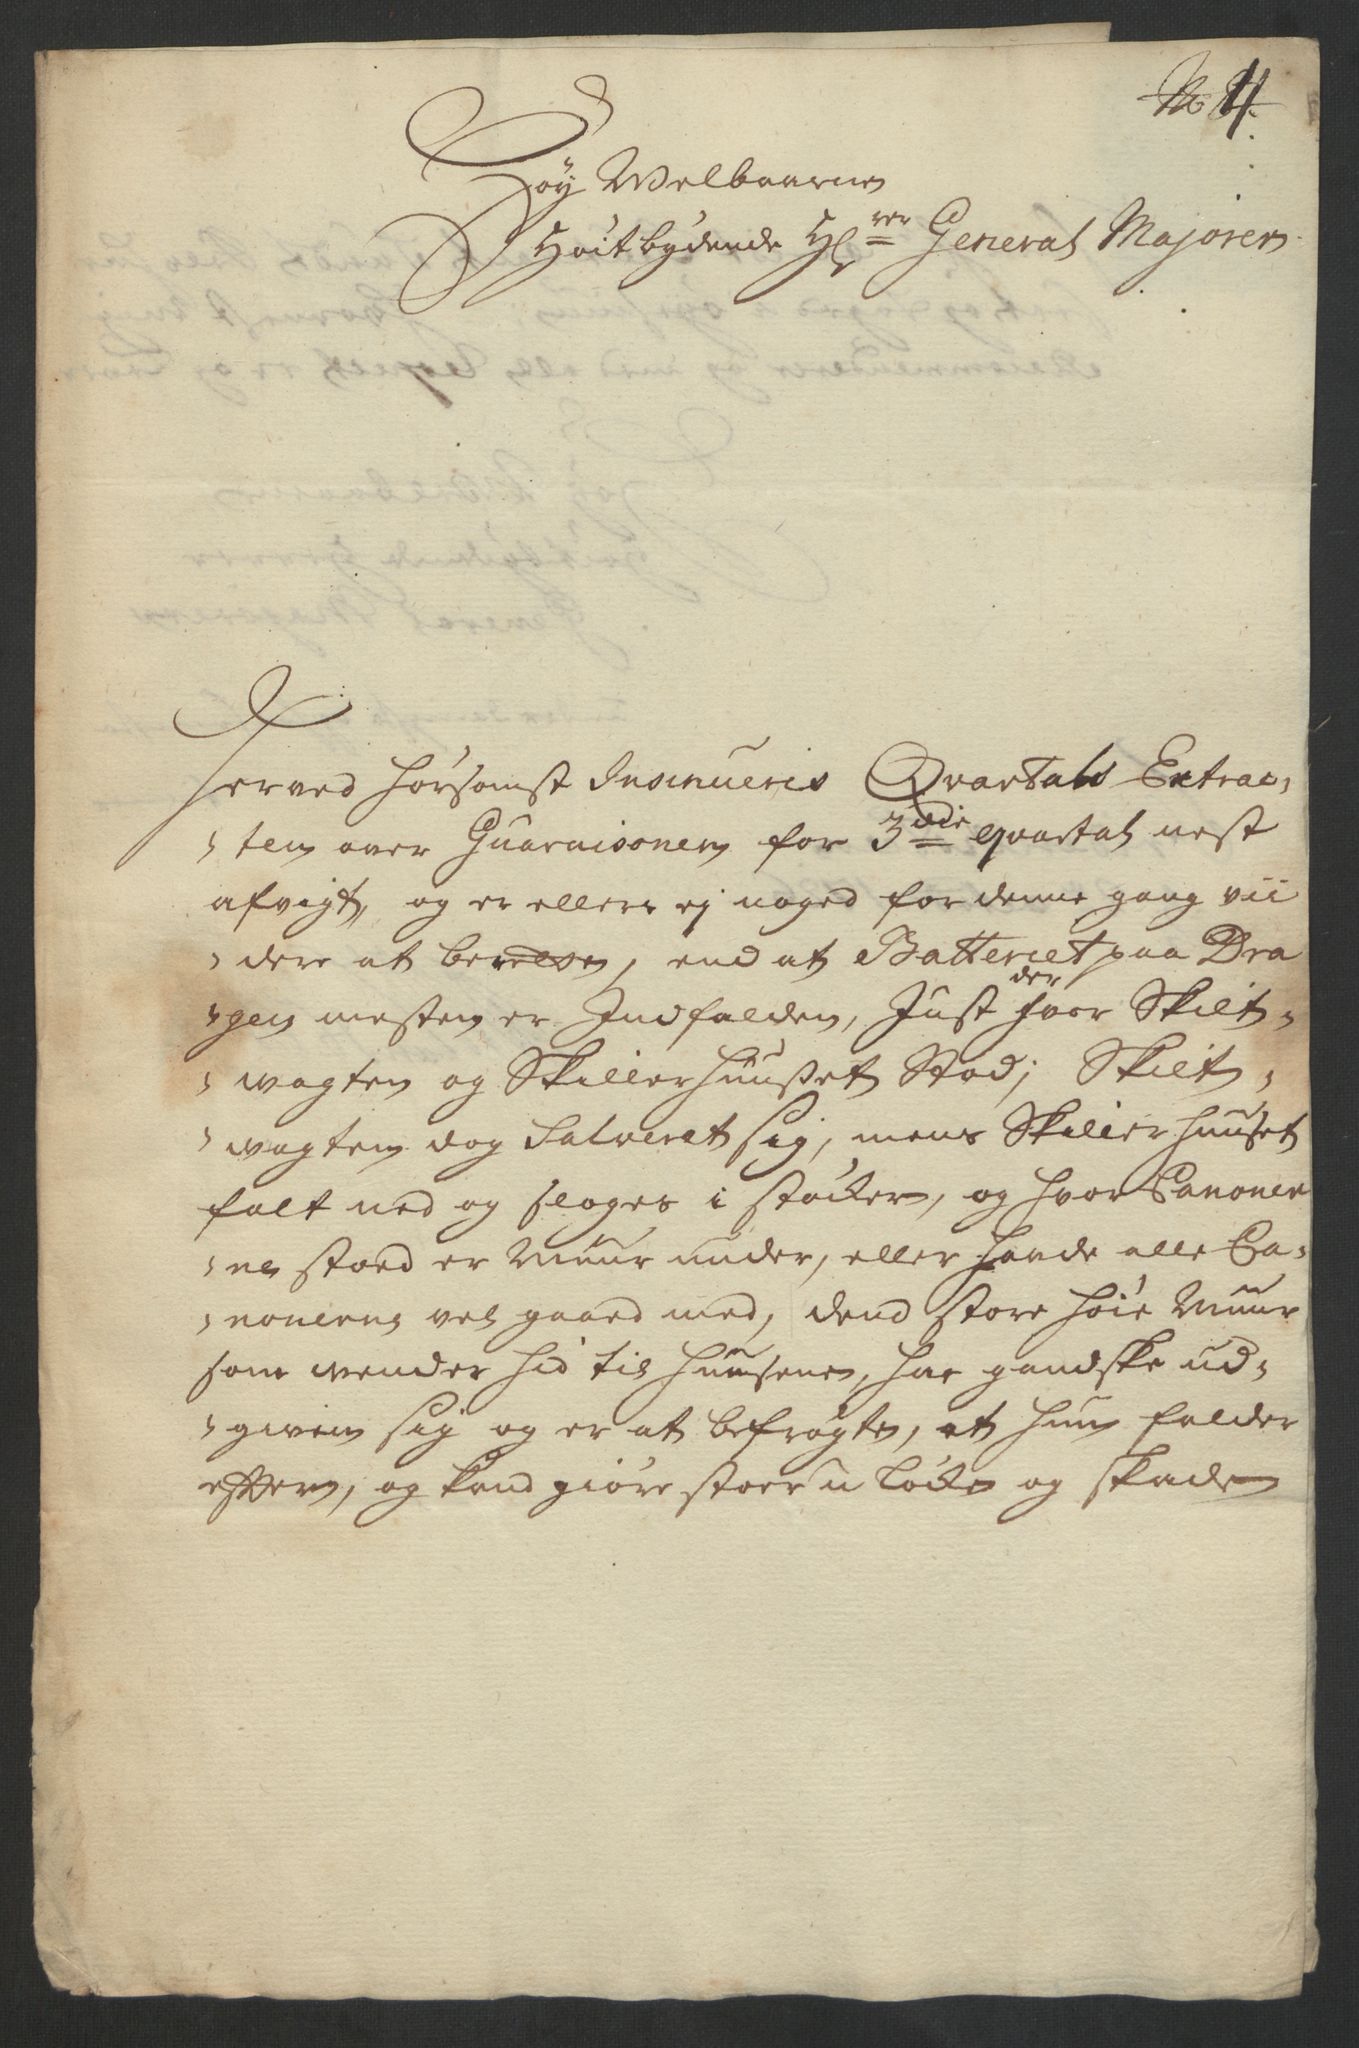 No 4.
Høy Welbaarne
Høitbydende Hr General Majoren
Herved hørsomst Insinueris Qvartals Extrac,
ten over Guarnisonen for 3die qvartal nest
afvigt, og er ellers ej noged for denne gang vii
dere at end at Batteriet paa Dra
gen mesten er Indfalden, Just der hvor Skilt,
wagten og Skillerhuuset Stod; Skilt,
wagten dog Salveret sig, mens Skillerhuuset
falt ned og sloges i støcker, og hvor Canoner
ne stoed er Muur under, eller hafde alle Ca,
nonerne vel gaaed med, dend store høie Muur
som vender hid til huusene, har gandske ud,
given sig og er at befrøgte, at hun falder
effter, og kand giøre stoer u løcke og skade